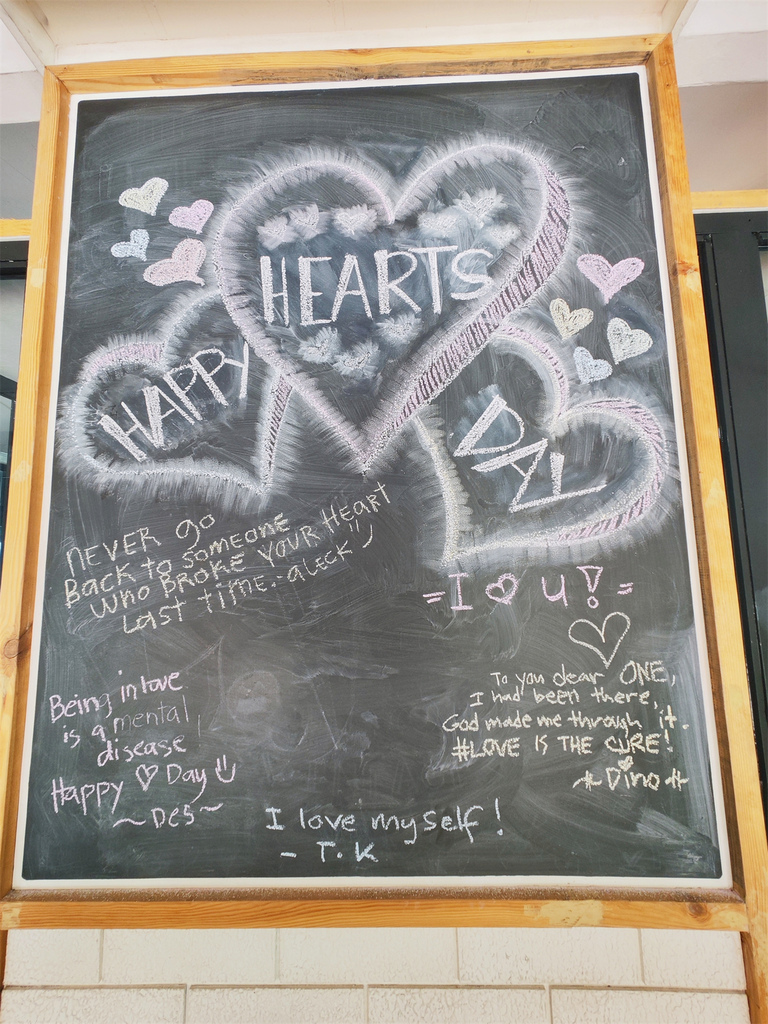 HAPPY
HEARTS
DAY
NEVER GO
BACK to someone
WHO BROKE YOUR HEART
Last time.-aLecK
=I ♡ U! =
Being in love
is a mental
disease
Happy ♡ Day
~Des~
To you dear ONE,
I had been there,
God made me through it.
#LOVE IS THE CURE!
*Dino*
I love myself!
- T.K